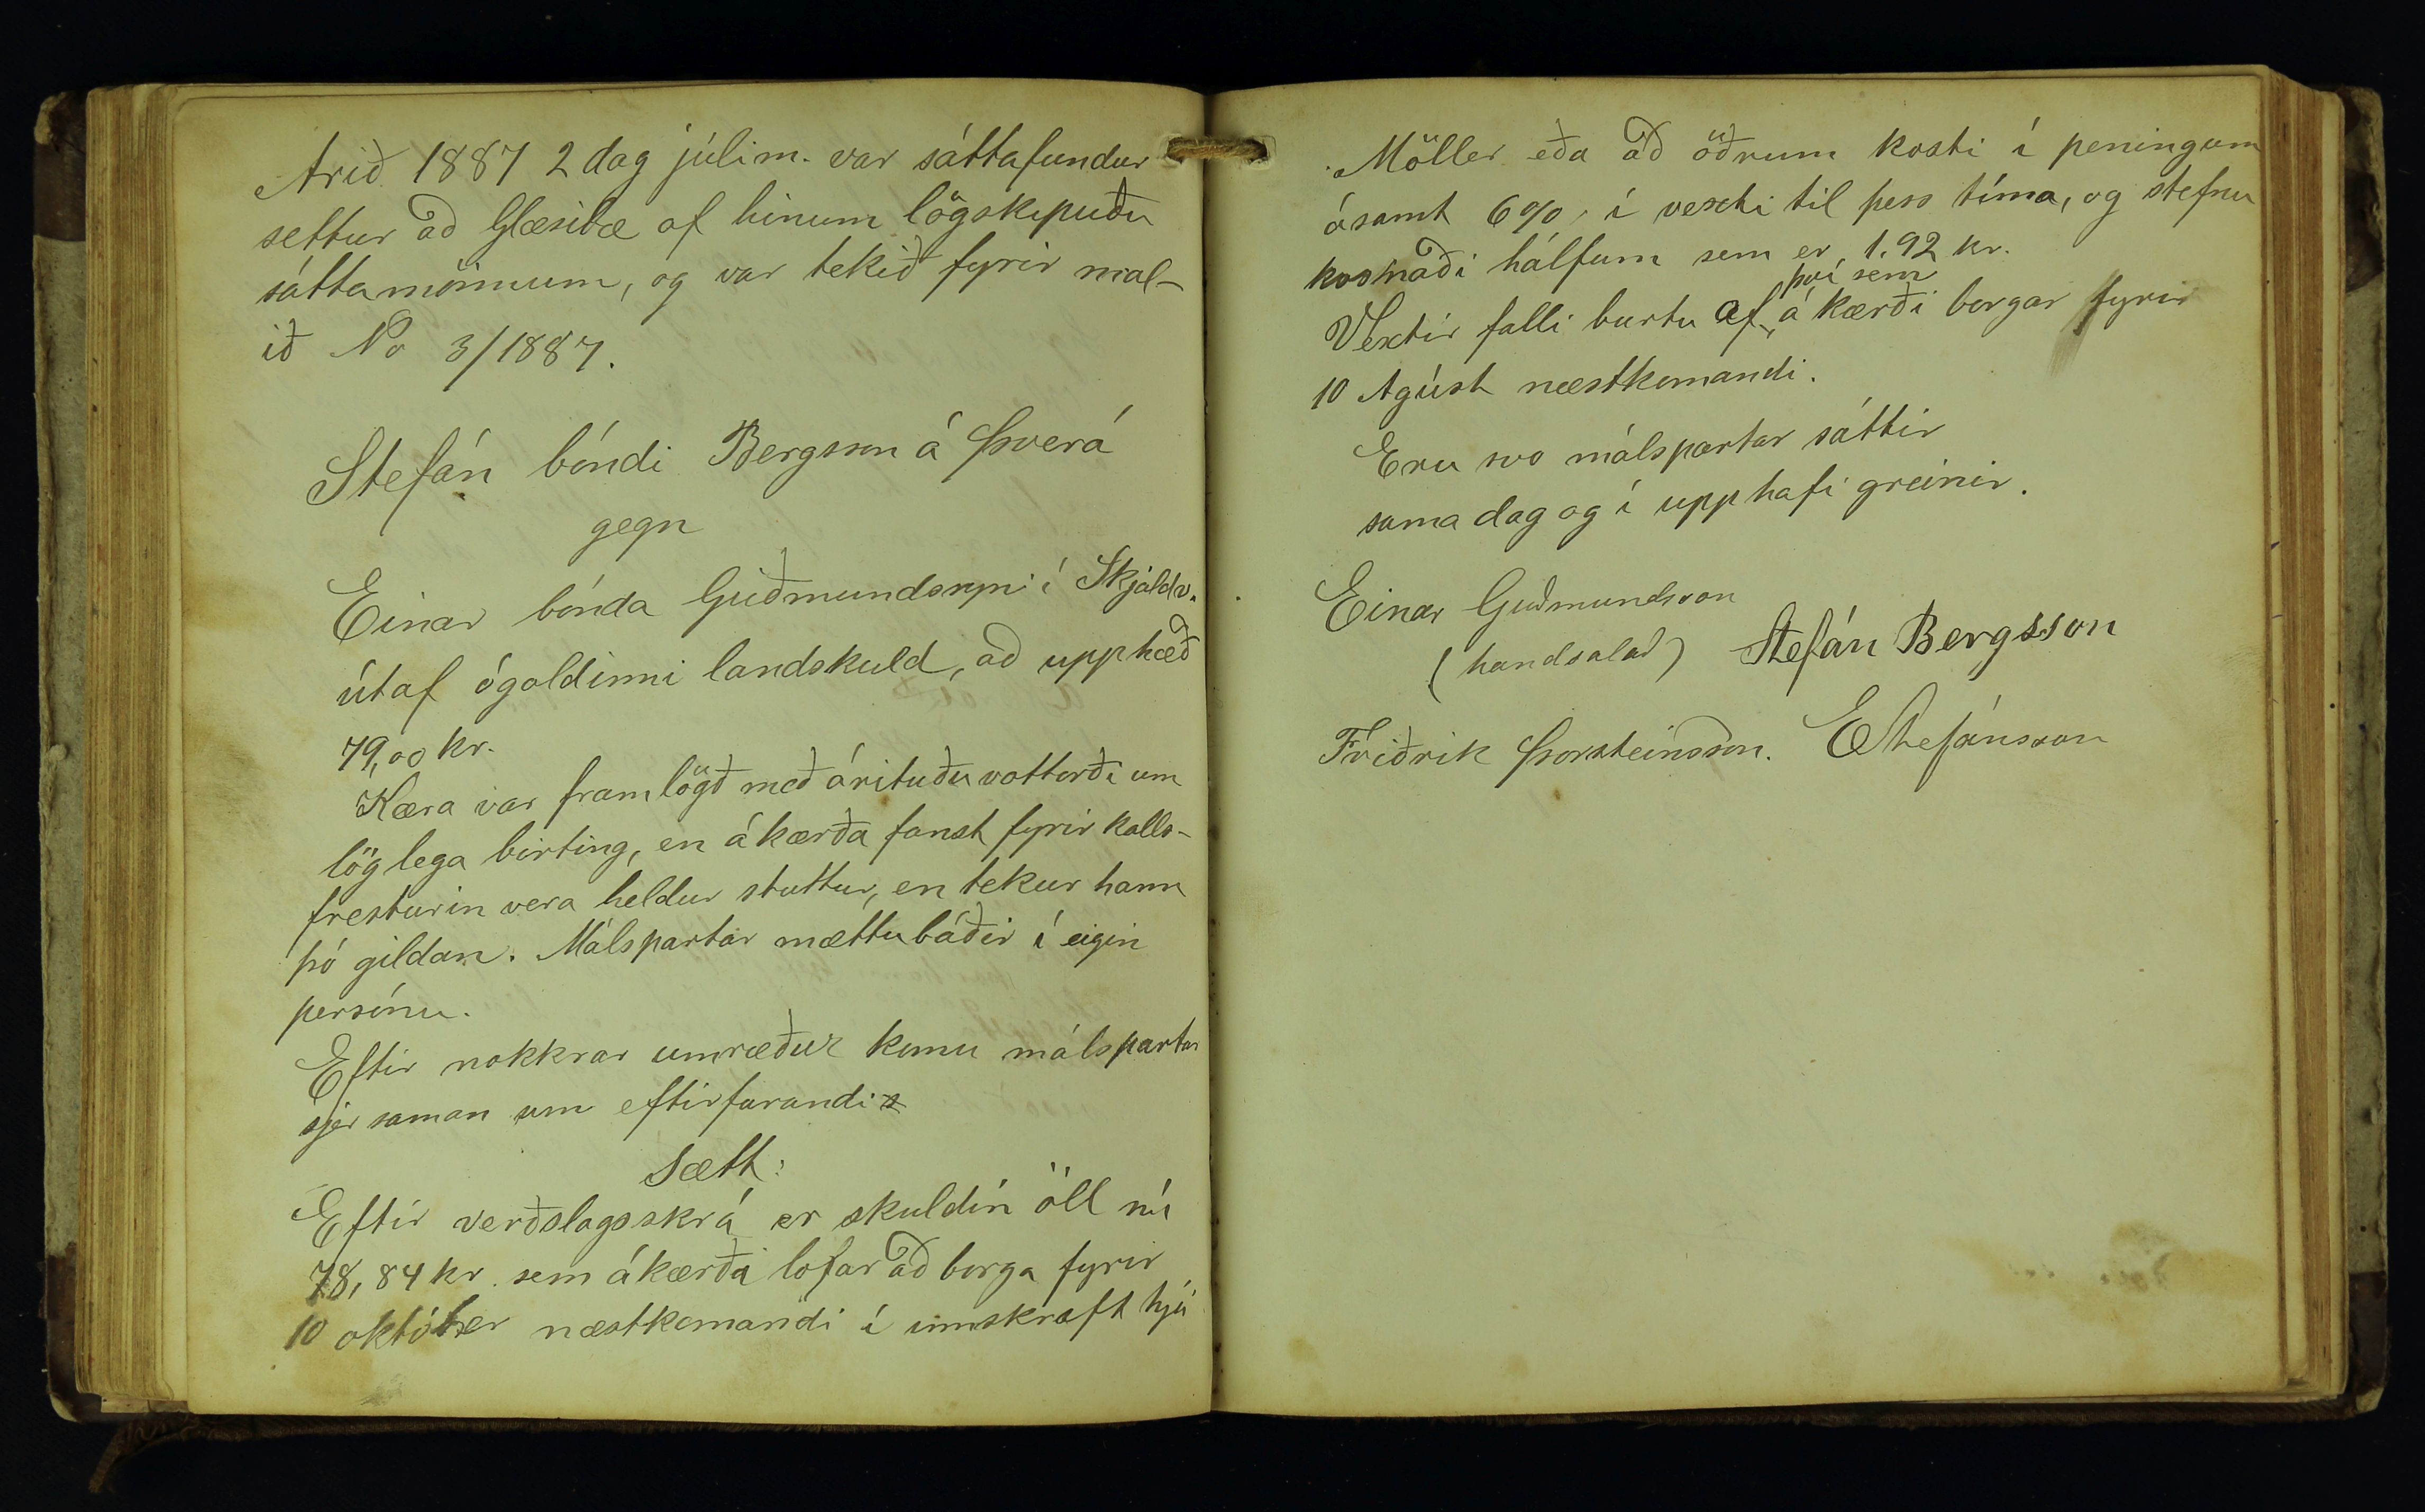 Árið 1887 2 dag júlím. var sáttafundur
settur að Glæsibæ af hinum lögskipuðu
sáttamönnum, og var tekið fyrir mal-
ið No 3/1887.
Stefán bóndi Bergsson á Þverá
gegn
Einar bónda Guðmundssyni í Skjaldv.
útaf ógoldinni landskuld, að upphæð
79,00 kr.
Kæra var framlögð með árituðu vottorði um
löglega birting, en ákærða fanst fyrirkalls-
fresturin vera heldur stuttur, en tekur hann
þó gildan. Málspartar mættu báðir í eigin
persónu.
Eftir nokkrar umræður komu málspartar
sjer saman um eftirfarandi
sætt:
Eftir verðslagsskrá er skuldin öll nú
78,84 kr. sem ákærði lofar að borga fyrir
10 október næstkomandi í innskraft hjá
Möller eða að öðrum kosti í peningum
ásamt 6% í vexti til þess tíma, og stefnu
kostnaði hálfum sem er 1.92 kr.
Vextir falli burtu af því sem ákærði borgar fyrir
10 Agúst næstkomandi.
Eru svo málspartar sáttir
sama dag og í upphafi greinir.
Einar Guðmundsson
(handsalað) Stefán Bergsson
Friðrik Þorsteinsson. EStefánsson